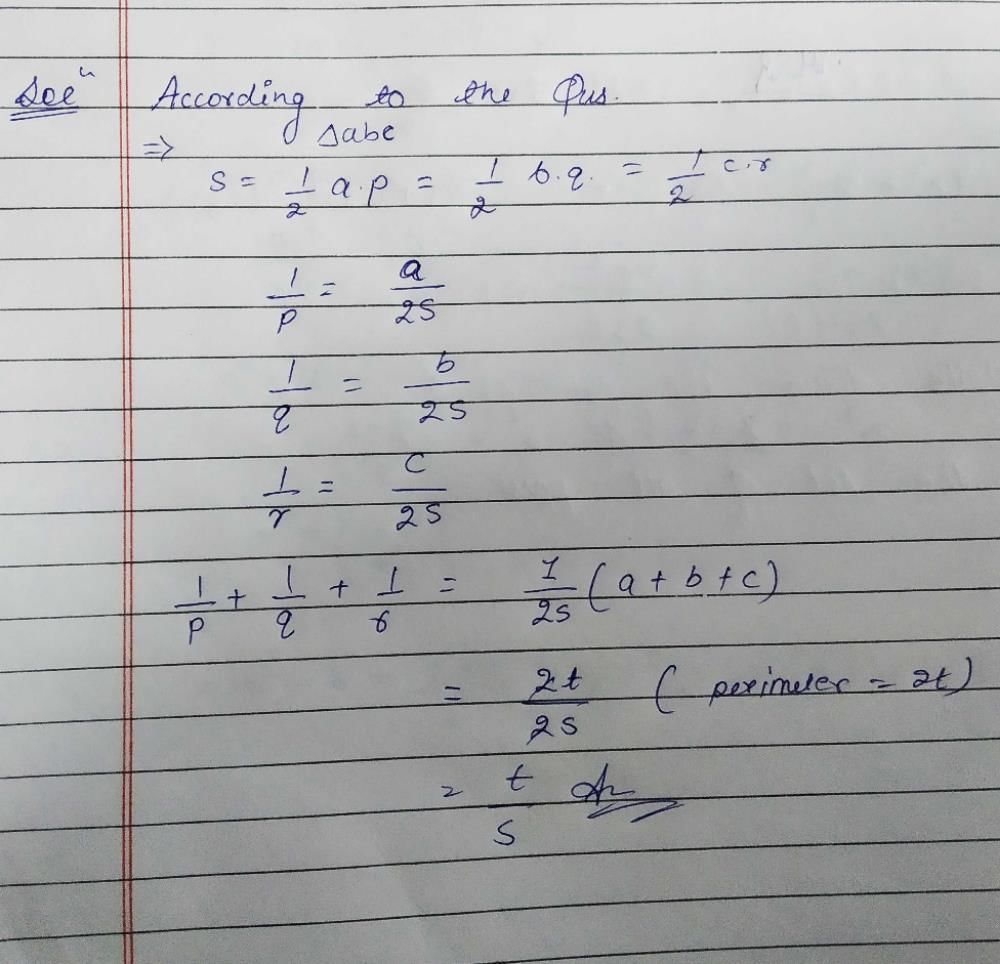 Solⁿ According to the Qus.
⇒ Δabc
S = 1/2 a.p = 1/2 b.q. = 1/2 c.r
1/p = a/2S
1/q = b/2S
1/r = c/2S
1/p + 1/q + 1/r = 1/2s (a + b + c)
= 2t/2s ( perimeter = 2t)
= t/s An